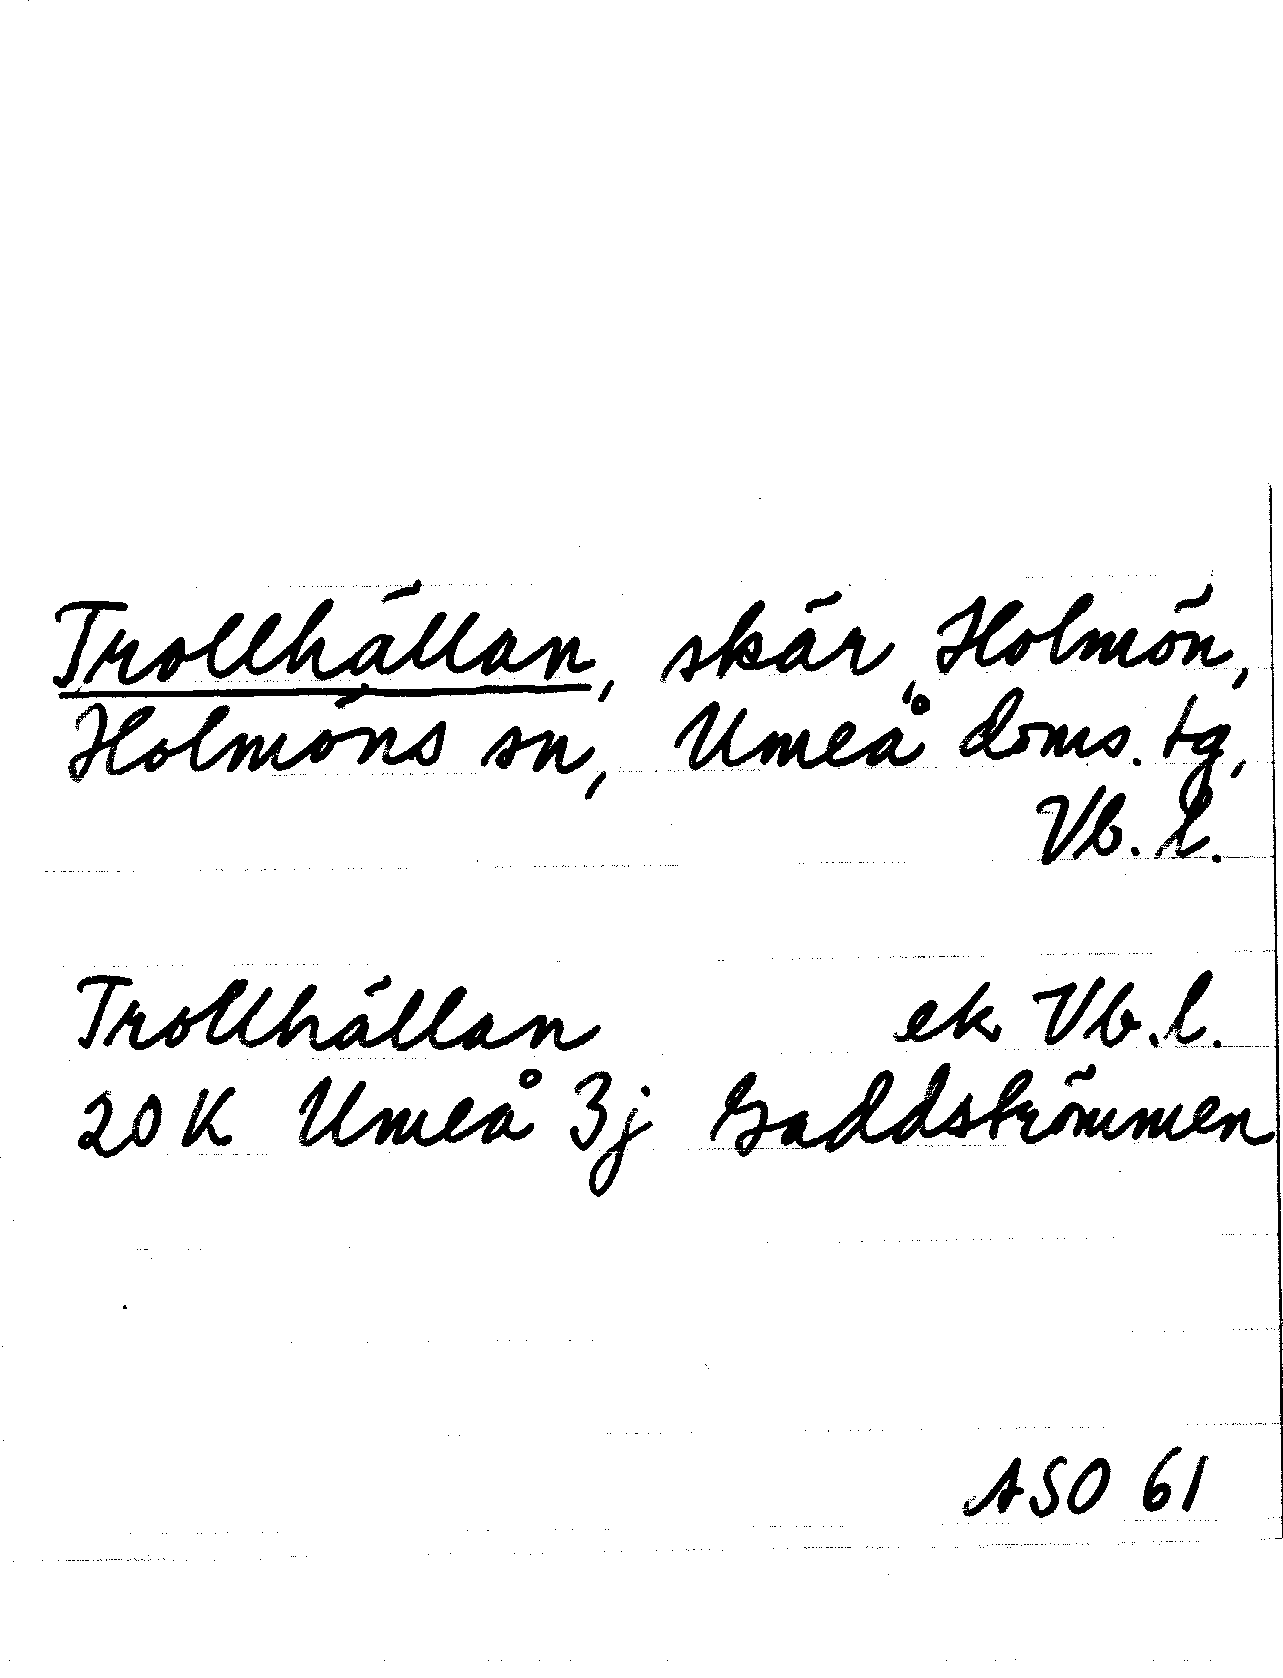 Trollhällan, skär, Holmön,
Holmöns sn, Umeå doms. tg,
Vb. l.
Trollhällan ek Vb.l.
20K Umeå 3j Gaddströmmen
ASO 61